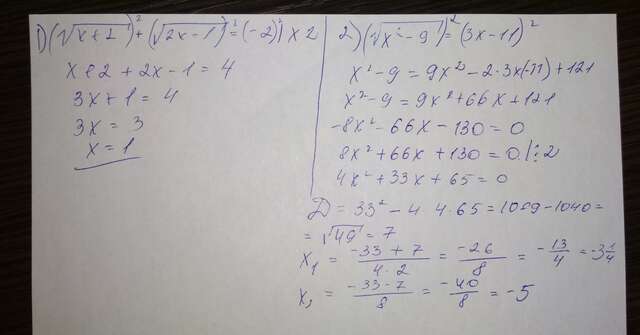 1) (√x+2)² + (√2x-1)² = (-2)² | x 2
x+2 + 2x - 1 = 4
3x + 1 = 4
3x = 3
x = 1
2) (√x²-9)² = (3x-11)²
x² - 9 = 9x² - 2·3x(-11) + 121
x² - 9 = 9x² + 66x + 121
-8x² - 66x - 130 = 0
8x² + 66x + 130 = 0 |:2
4x² + 33x + 65 = 0
D = 33² - 4 4·65 = 1089 - 1040 =
= √49 = 7
x₁ = (-33+7)/(4·2) = -26/8 = -13/4 = -3 1/4
x₂ = (-33-7)/8 = -40/8 = -5